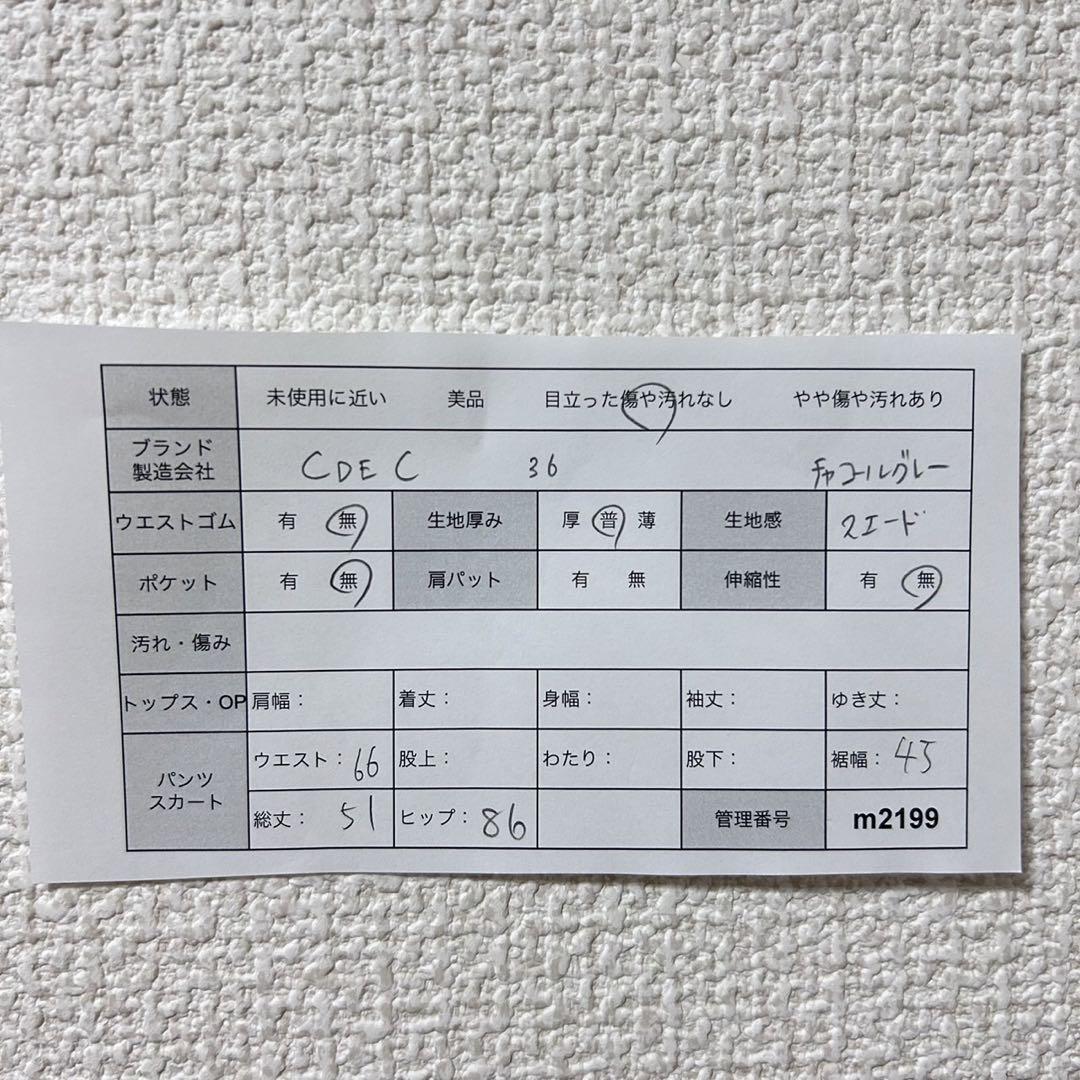 状態 未使用に近い 美品 目立った傷や汚れなし やや傷や汚れあり
ブランド
製造会社 CDEC 36 チャコールグレー
ウエストゴム 有 無 生地厚み 厚 普 薄 生地感 スエード
ポケット 有 無 肩パット 有 無 伸縮性 有 無
汚れ・傷み
トップス・OP 肩幅： 着丈： 身幅： 袖丈： ゆき丈：
パンツ
スカート
ウエスト：66 股上： わたり： 股下： 裾幅：45
総丈：51 ヒップ：86 管理番号 m2199